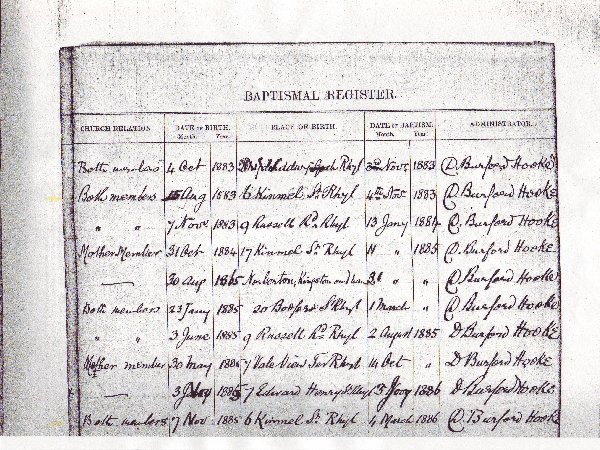 BAPTISMAL REGISTER.
CHURCH RELATION DATE OF BIRTH. PLACE OF BIRTH. DATE OF BAPTISM. ADMINISTRATOR.
Month. Year. Month. Year.
Both members 4 Oct 1883 Rhyl Novr 1883 D. Burford Hooke
Both members Aug 1883 6 Kinmel St. Rhyl 4th Novr 1883 D. Burford Hooke
" " 7 Novr 1883 9 Russell Rd Rhyl 13 Jany 1884 D. Burford Hooke
Mother Member 31 Oct 1884 17 Kinmel St. Rhyl 11 " 1885 D. Burford Hooke
30 Aug Norbiton, Kingston " " D. Burford Hooke
Both members 23 Jany 1885 20 St Rhyl 1 March " D. Burford Hooke
" " 3 June 1885 9 Russell Rd Rhyl 2 August 1885 D Burford Hooke
Mother member 30 May 7 Vale View Ter Rhyl 14 Oct " D Burford Hooke
3 1885 7 Edward Henry St Rhyl 1886 D. Burford Hooke
Both members 7 Nov 1885 6 Kinmel St. Rhyl 4 March 1886 D. Burford Hooke